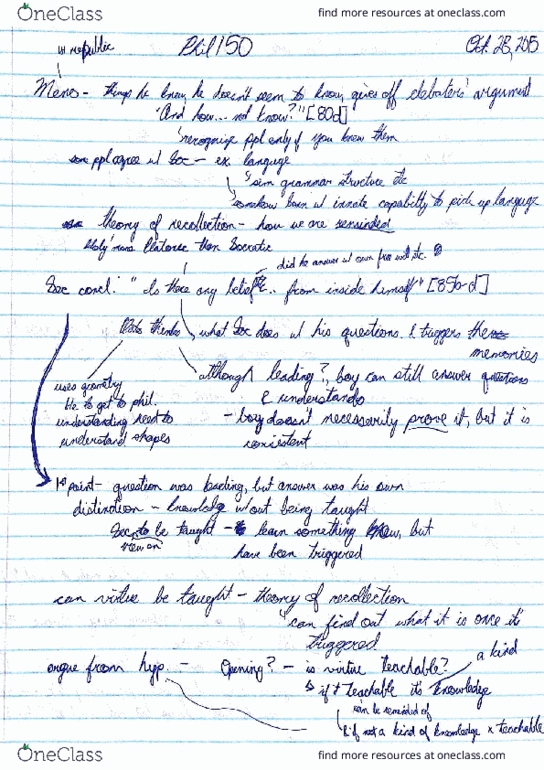 OneClass
find more resources at oneclass.com
in republic
Phil 150
Oct. 28, 2015
Meno - things he know, he doesn't seem to know, gives off debaters' argument
"And how... not know?" [80d]
recognize ppl only if you knew them
some ppl agree w/ Soc - ex. language
sim grammar structure etc
somehow born w/ innate capability to pick up language
theory of recollection - how we are reminded
more Platonic than Socratic
did he answer w/ own free will etc.
Soc concl. "Is there any beliefs.. from inside himself" [85b-d]
thinks, what Soc does w/ his questions & triggers the memories
although leading?, boy can still answer questions
& understands
uses geometry
to get to phil.
understanding need to
understand shapes
- boy doesn't necessarily prove it, but it is
consistent
1st point - question was leading, but answer was his own
distinction - knowledge w/out being taught
Soc, to be taught - learn something new, but
have been triggered
can virtue be taught - theory of recollection
can find out what it is once it's
triggered
argue from hyp. - Opening? - is virtue teachable?
a kind
if teachable it's knowledge
can be reminded of
if not a kind of knowledge x teachable
OneClass
find more resources at oneclass.com